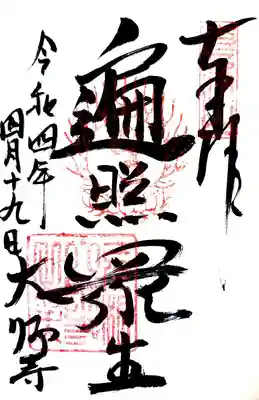 奉拝
遍照眾生
令和四年
四月十九日 大師寺